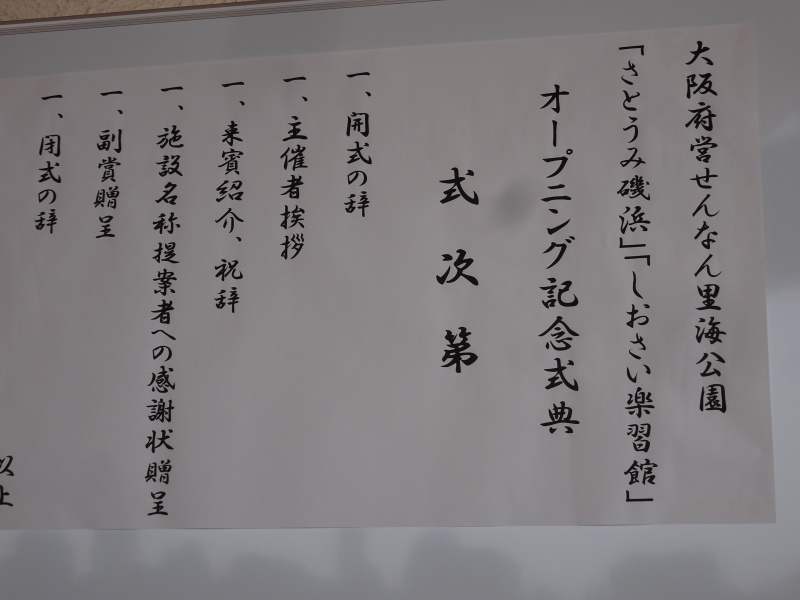 大阪府営せんなん里海公園
「さとうみ磯浜」「しおさい楽習館」
オープニング記念式典
式次第
一、開式の辞
一、主催者挨拶
一、来賓紹介、祝辞
一、施設名称提案者への感謝状贈呈
一、副賞贈呈
一、閉式の辞
以上